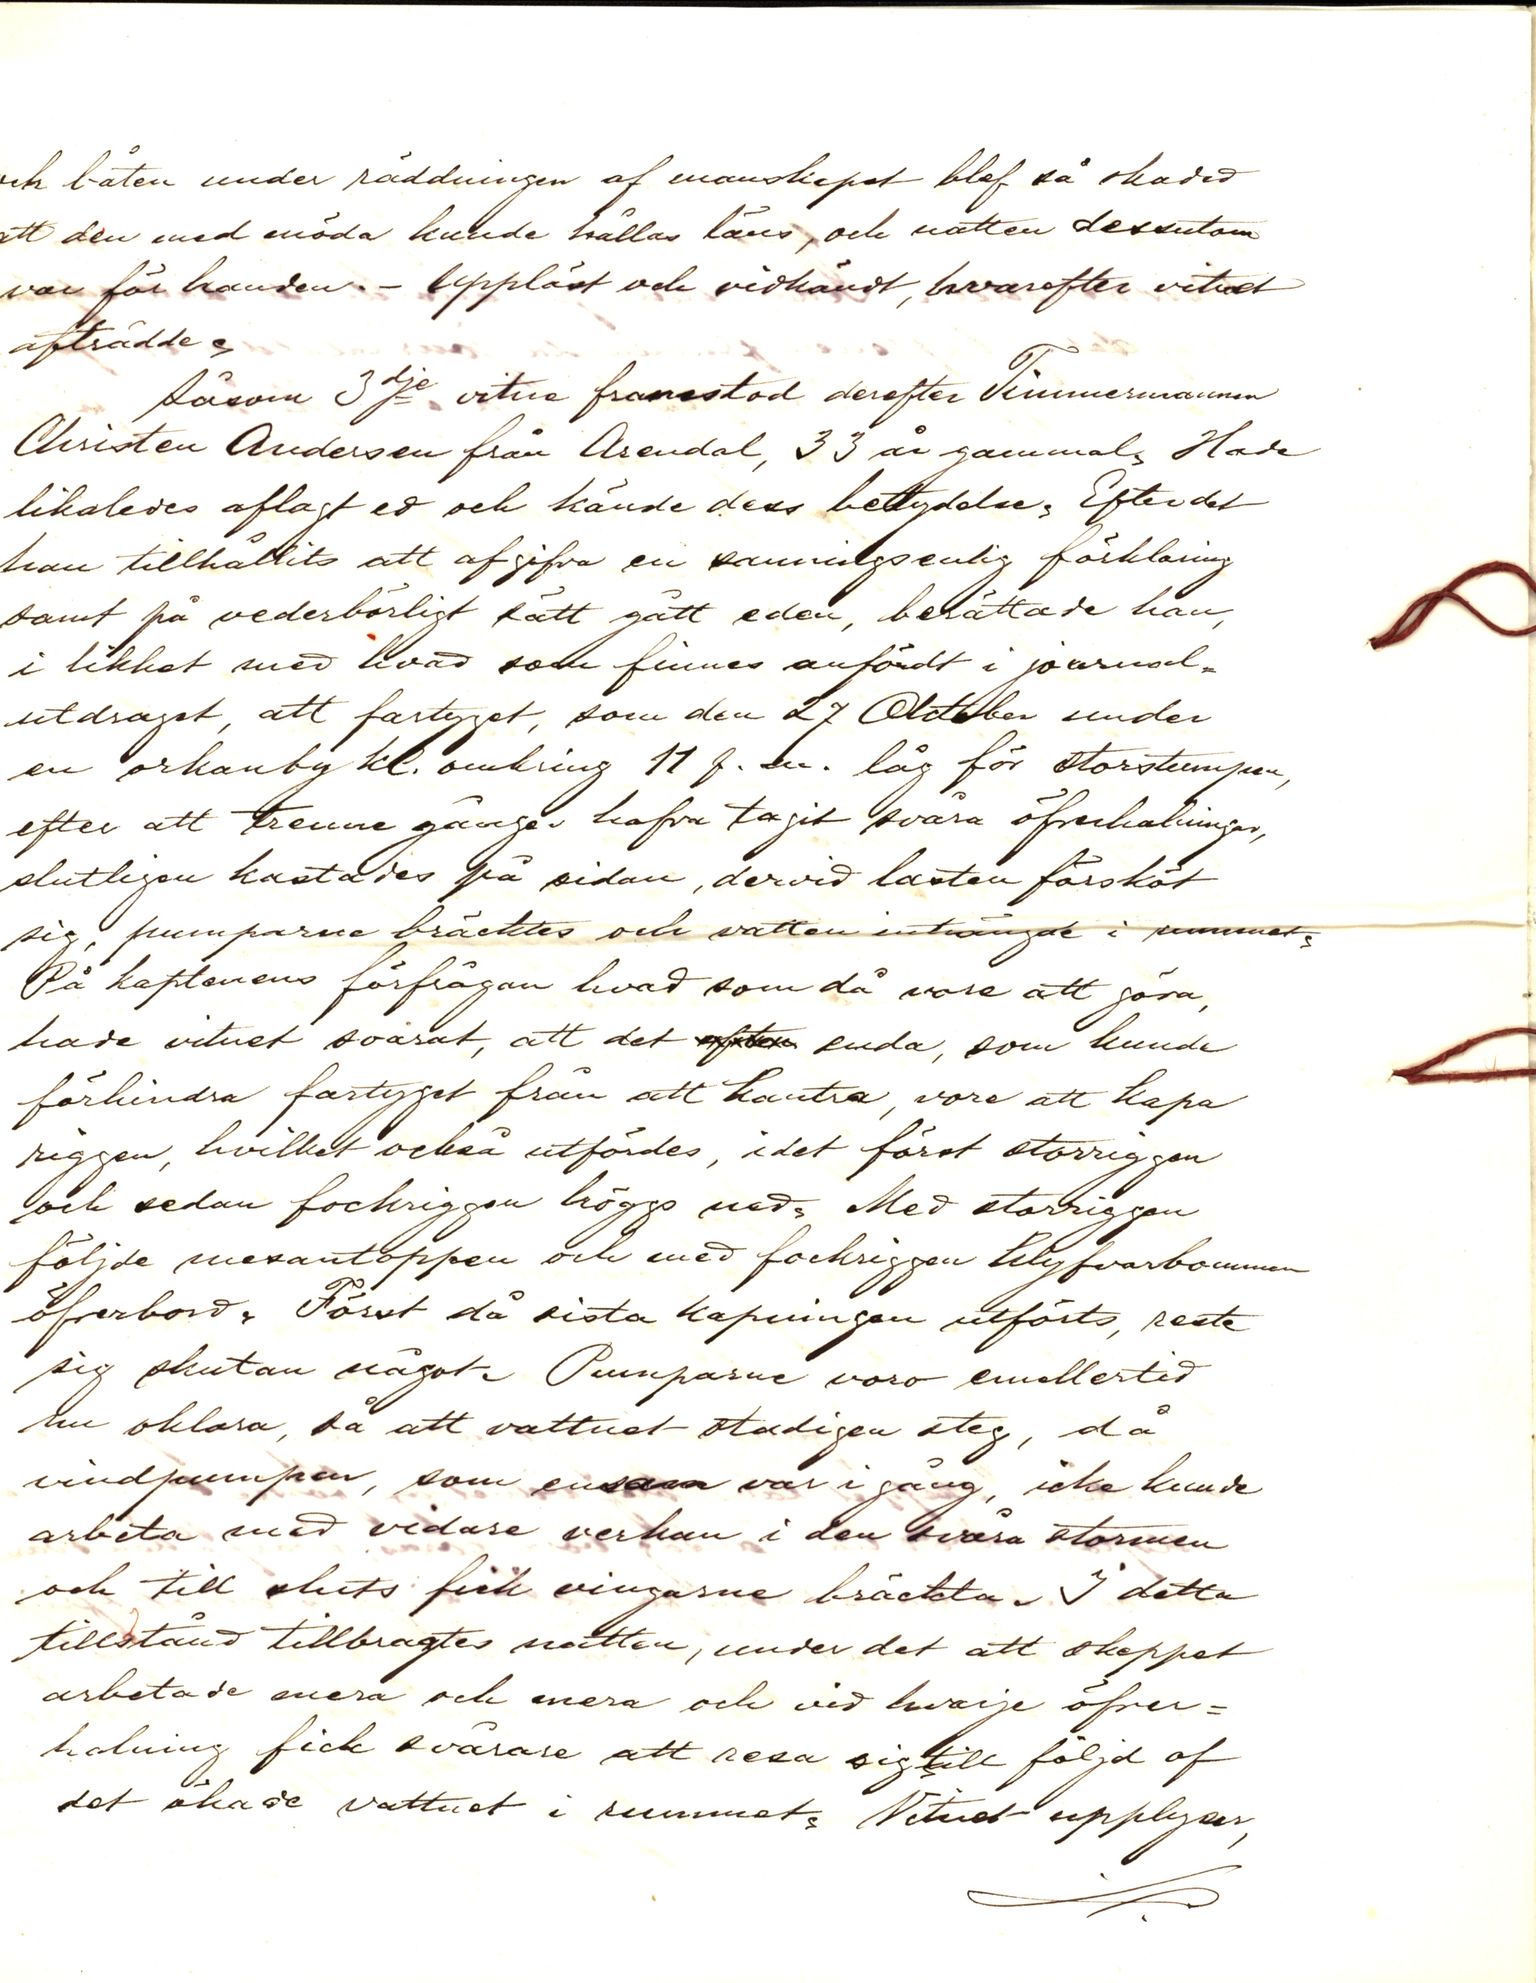 och båten under räddningen af manskapet blef så skadad
att den med möda kunde hållas läns, och natten dessutom
var för handen. – Uppläst och vidkändt, hvarefter vitnet
afträdde.
Såsom 3dje vitne framstod derefter Timmermannen
Christen Andersen från Arendal, 33 år gammal. Hade
likaledes aflagt ed och kände dess bettydelse. Efter det
han tillhållits att afgifva en sanningsenlig förklaring
samt på vederbörligt sätt gått eden, berättade han,
i likhet med hvad som finnes anfördt i journal-
utdraget, att fartyget, som den 27 Oktober under
en orkanby kl. omkring 11 f. m. låg för storstumpen,
efter att trenne gånger hafva tagit svåra öfverhalningar,
slutligen kastades på sidan, dervid lasten försköt
sig, pumparne bräcktes och vatten inträngde i rummet.
På kaptenens förfrågan hvad som då vore att göra,
hade vitnet svarat, att det enda, som kunde
förhindra fartyget från att kantra, vore att kapa
riggen, hvilket också utfördes, i det först storriggen
och sedan fockriggen höggs ned. Med storriggen
följde mesantoppen och med fockriggen klyfvarbommen
öfverbord. Först då sista kapningen utförts, reste
sig skutan något. Pumparne voro emellertid
nu oklara, så att vattnet stadigen steg, då
vindpumpen, som ensam var i gång, icke kunde
arbeta med vidare verkan i den svåra stormen
och till sluts fick vingarne bräckta. I detta
tillstånd tillbragtes natten, under det att skeppet
arbetade mera och mera och vid hvarje öfver-
halning fick svårare att resa sig till följd af
det ökade vattnet i rummet. Vitnet upplyser,